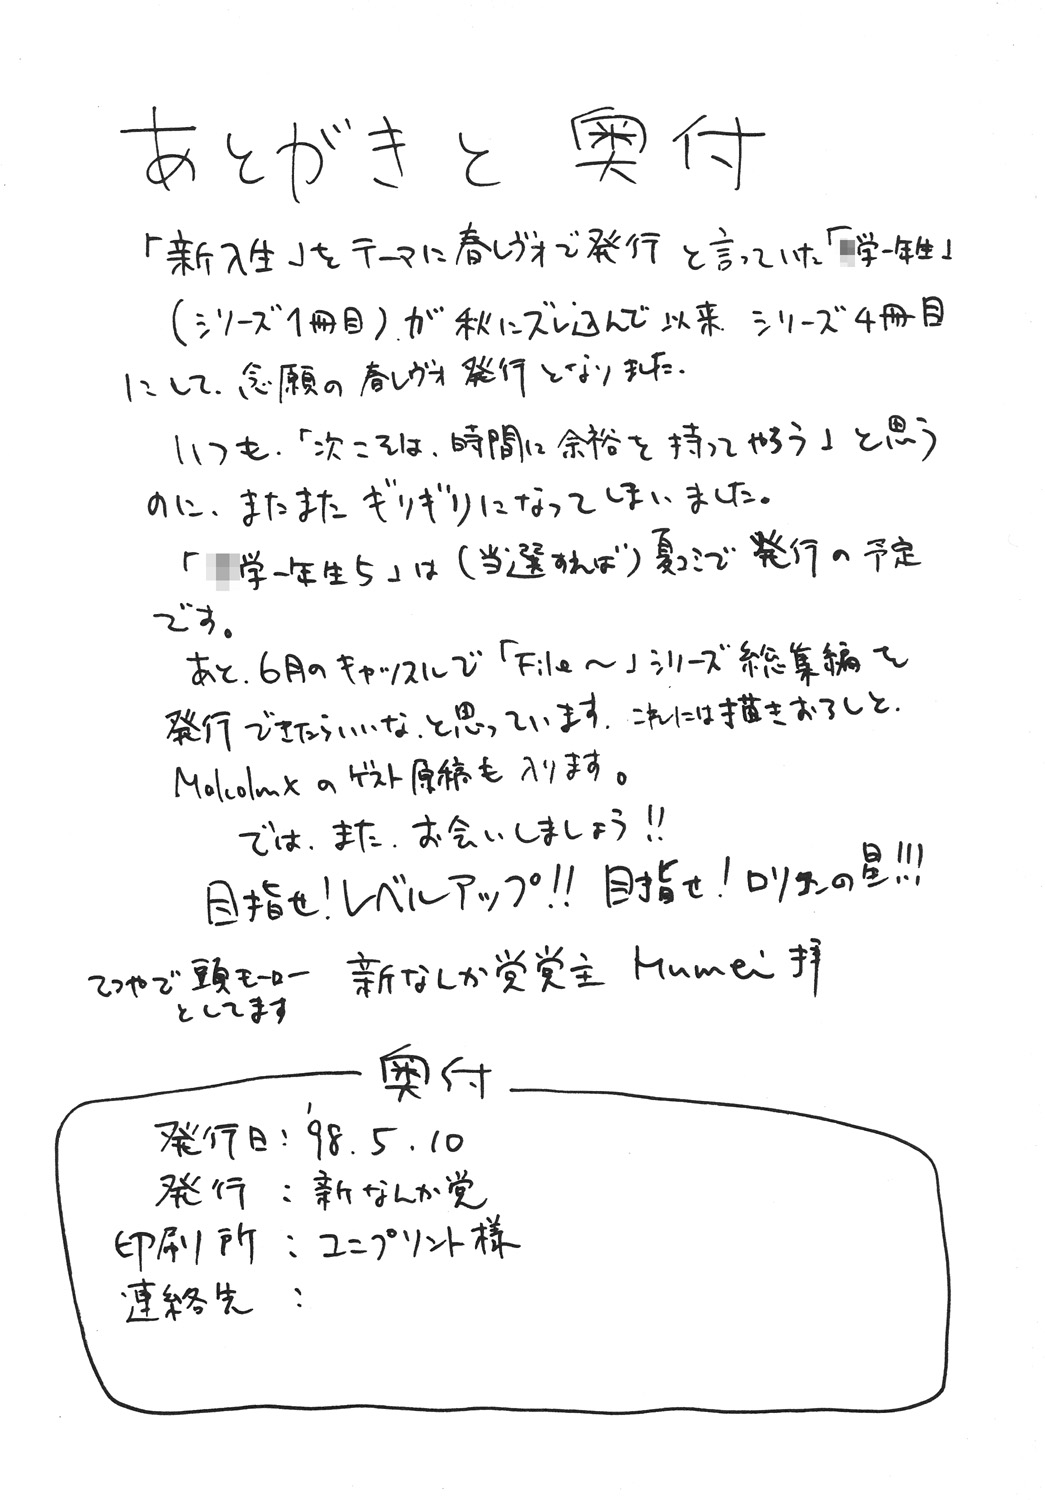 あとがきと 奥付
「新入生」をテーマに春レヴォで発行と言っていた「学一年生」
(シリーズ1冊目)が秋にズレ込んで以来 シリーズ4冊目
にして、念願の春レヴォ発行となりました.
いつも、「次こそは、時間に余裕を持ってやろう」と思う
のに、またまたギリギリになってしまいました。
「学一年生5」は(当選すれば)夏コミで発行の予定
です。
あと、6月のキャッスルで「File〜」シリーズ総集編を
発行できたらいいな、と思っています. これには描きおろしと、
Molcolmxのゲスト原稿も入ります。
では、また、お会いしましょう!!
目指せ!レベルアップ!! 目指せ!ロリの星!!!
てつやで頭モーロー
としてます
新なんか党党主 Mumei 拝
奥付
発行日:'98.5.10
発行:新なんか党
印刷所:ユニプリント様
連絡先: